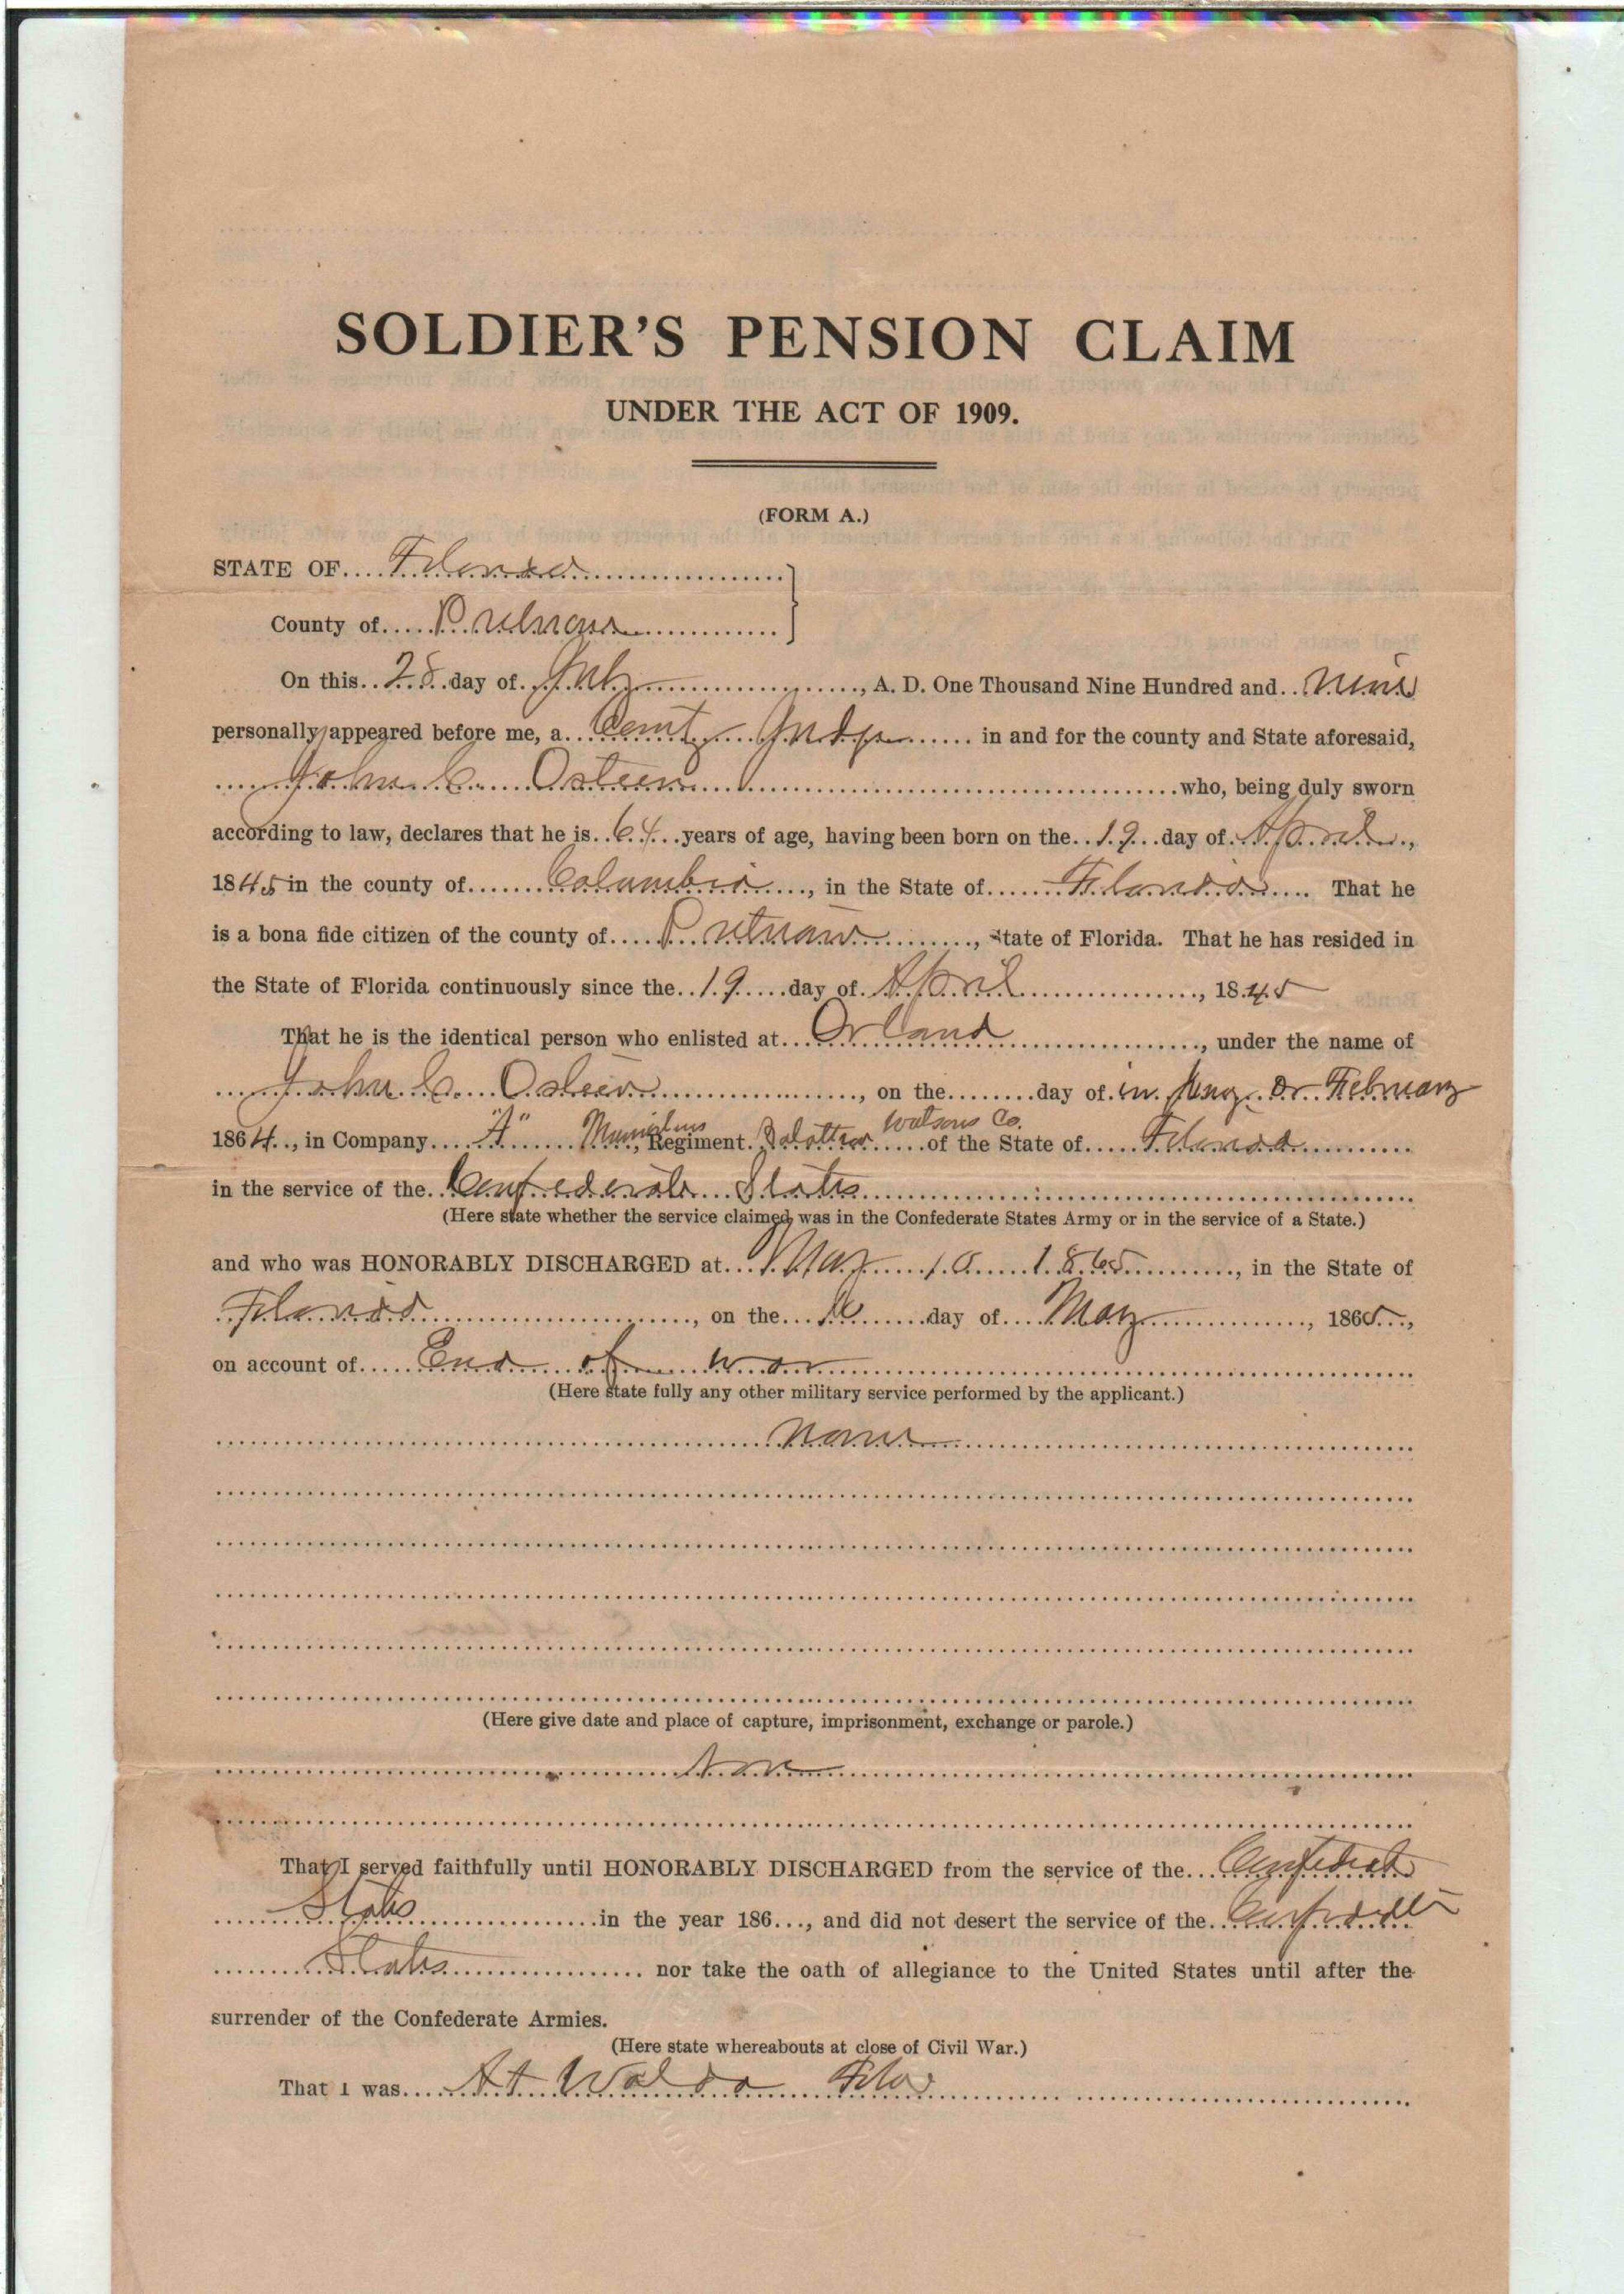 SOLDIER'S PENSION CLAIM
UNDER THE ACT OF 1909.
(FORM A.)
STATE OF.... Florida
County of..... Putnam
On this.. 28 day of. July ......, A. D. One Thousand Nine Hundred and.. Nine
personally appeared before me, a.. County Judge ...... in and for the county and State aforesaid,
John C. Osteen ......who, being duly sworn
according to law, declares that he is.. 64 ..years of age, having been born on the.. 19 ...day of. April ..,
1845 in the county of....... Columbia ....., in the State of...... Florida .... That he
is a bona fide citizen of the county of.... Putnam ......, State of Florida. That he has resided in
the State of Florida continuously since the.. 19 .....day of. April ......, 1845
That he is the identical person who enlisted at... Orland ......, under the name of
John C. Osteen ......, on the.........day of. in Jany. Or. February
1864.., in Company.... "A" ...... Munerlins Regiment. Batallion Watsons Co. .....of the State of..... Florida
in the service of the.. Confederate States
(Here state whether the service claimed was in the Confederate States Army or in the service of a State.)
and who was HONORABLY DISCHARGED at... May 10 1865 ......, in the State of
Florida ......, on the... 10 ......day of.... May ......, 1865...,
on account of..... End of war
(Here state fully any other military service performed by the applicant.)
None
(Here give date and place of capture, imprisonment, exchange or parole.)
That I served faithfully until HONORABLY DISCHARGED from the service of the... Confederate
States ......in the year 186..., and did not desert the service of the.. Confederate
States ...... nor take the oath of allegiance to the United States until after the
surrender of the Confederate Armies.
(Here state whereabouts at close of Civil War.)
That I was.... At Waldo Fla